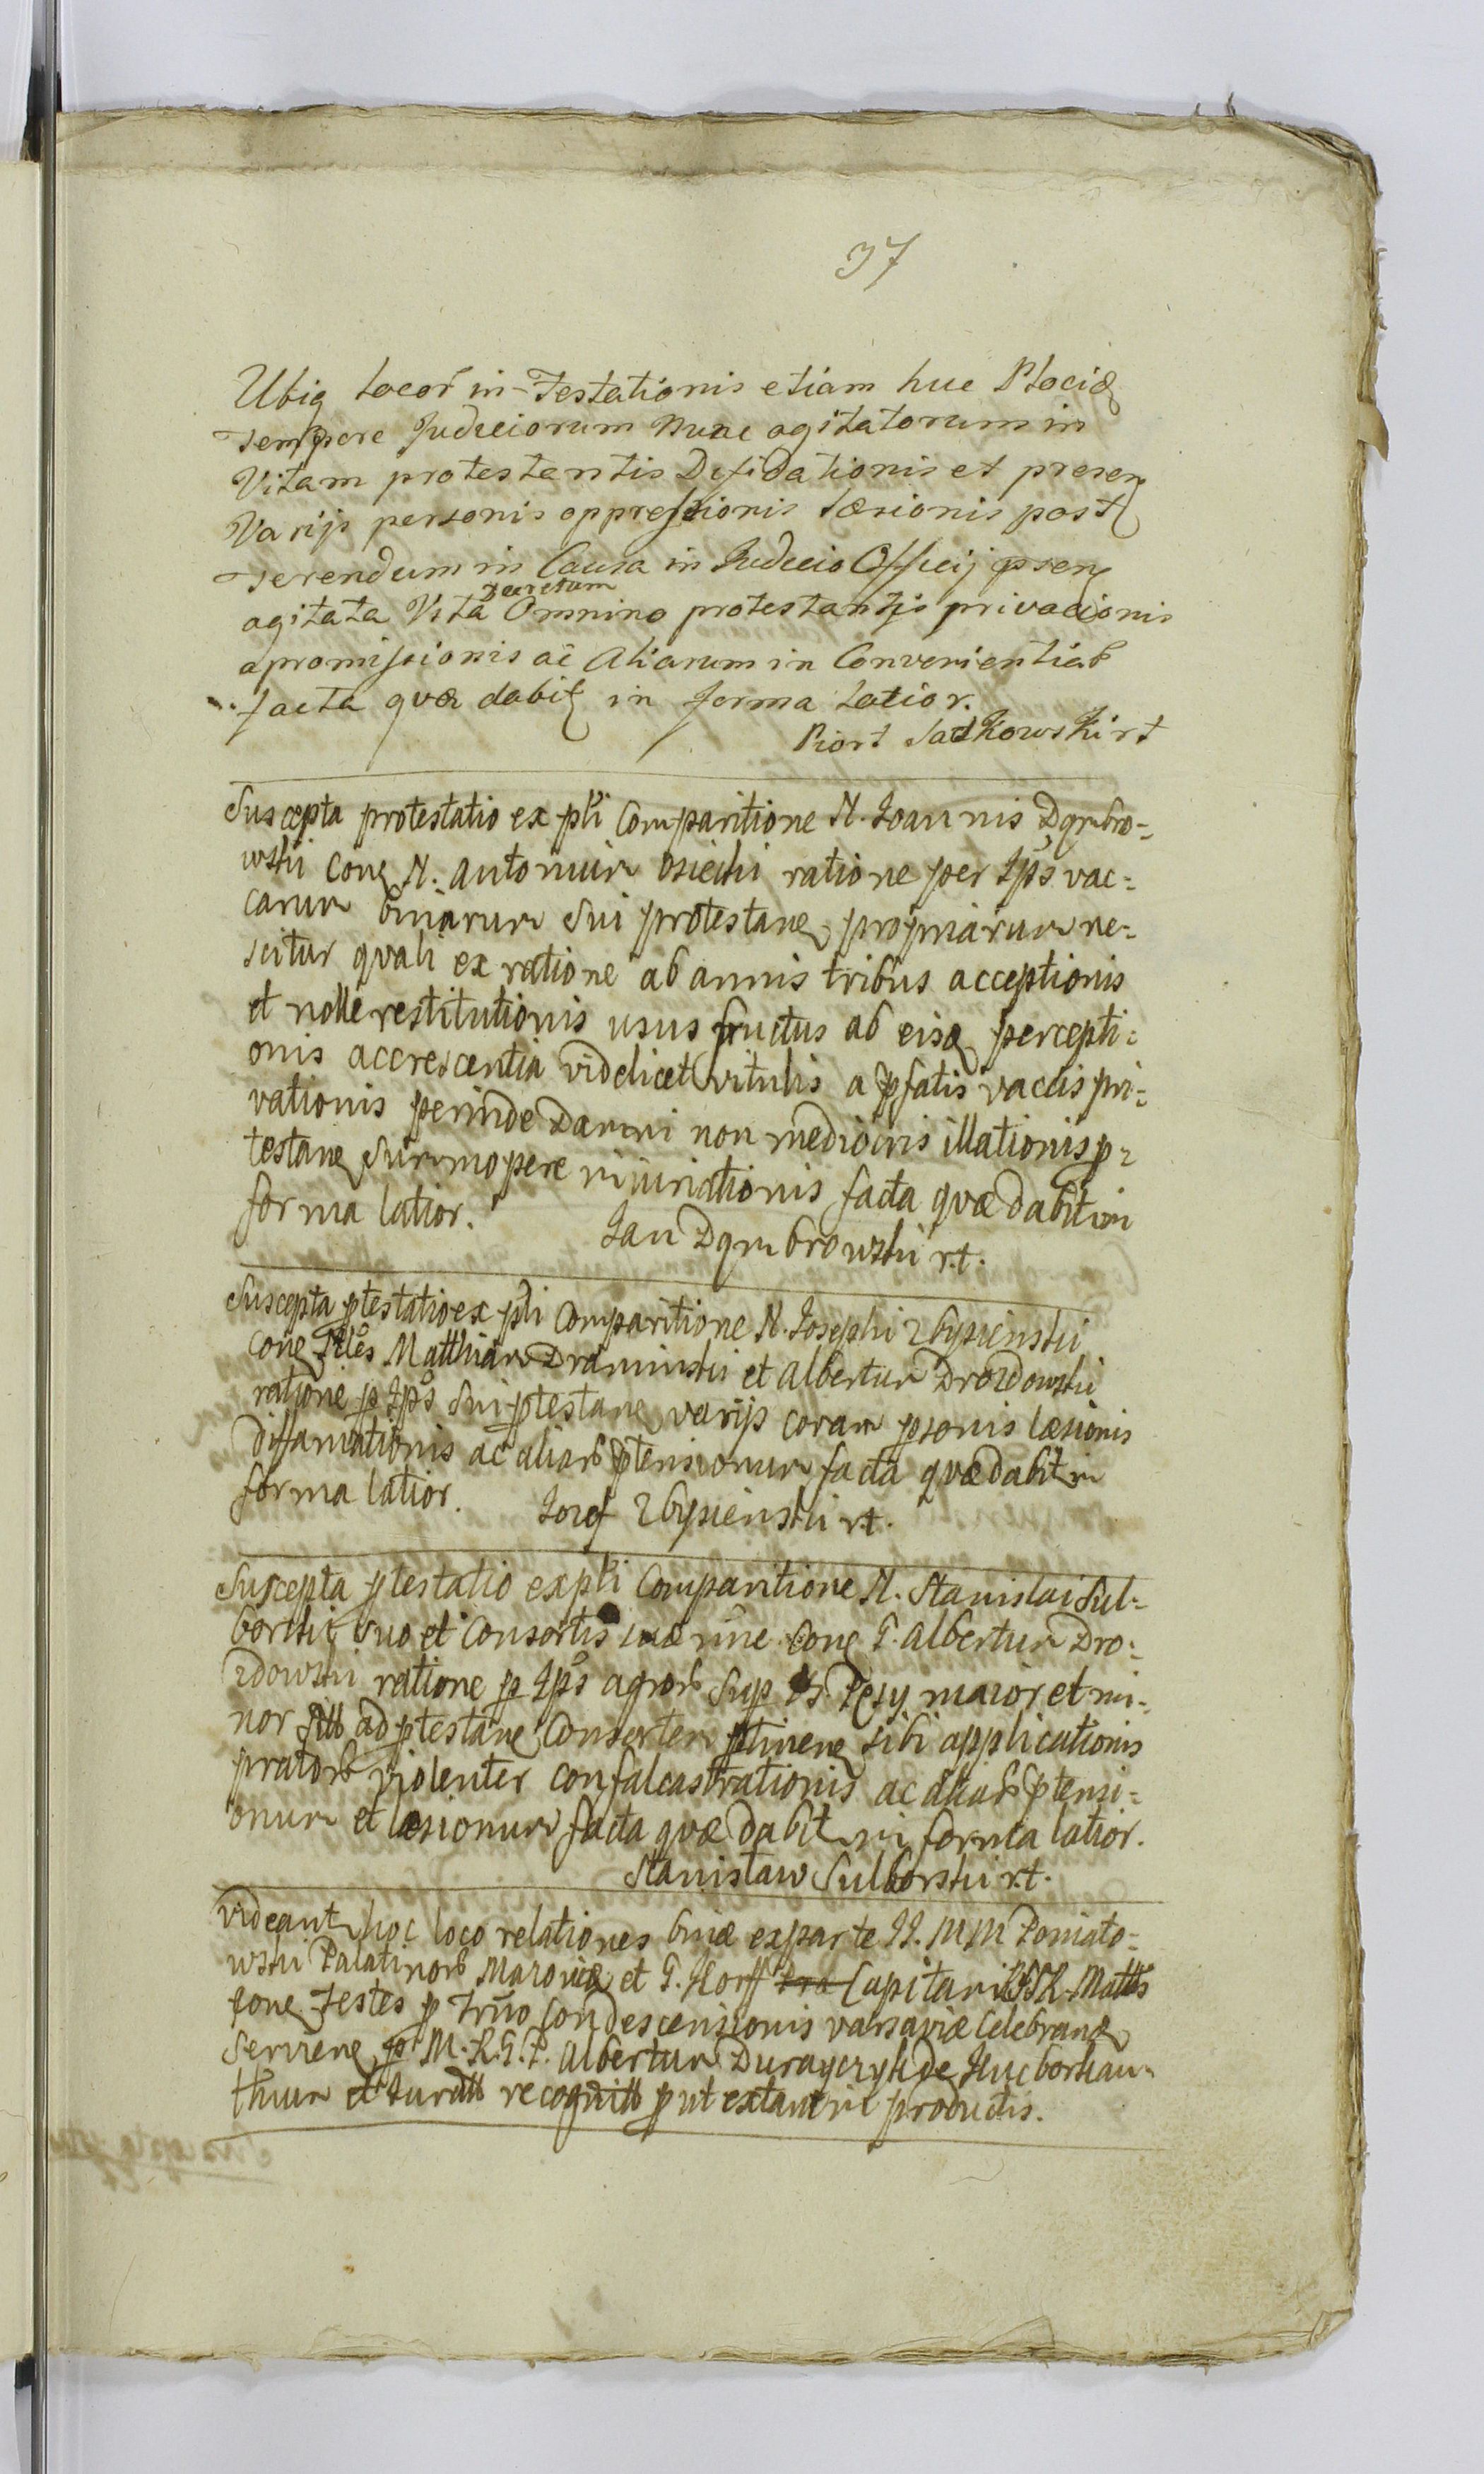 37
Ubiq locor in-Testationis etiam huc Placiq
sempore Judiciorum nunc agitatorum in
Vitam protestantis Difidationis et presen
Varijs personis oppressionis læsionis post
serendum in Causa in Judicio Officij psen
Decretum
agitata Vita Omnino protestantis privationis
apromissionis ac Aliarum in Convenientiar
facta quæ dabit in forma latior.
Piort Sadkowski rt
Suscepta protestatio ex psti Comparitione N. Joannis Dąmbro-
wski Cong N. Antonium Osiecki ratione per Ips vac-
carum binarum Sui protestane propriarum ne-
scitur quali ex ratione ab annis tribus acceptionis
et nolle restitutionis usus fructus ab eisq percepti-
onis accrescentia videlicet vitulis a pfatis vaccis pri-
vationis perinde Damni non mediocris illationis p-
testane Summopere iniuriationis facta quæ dabit in
forma latior.
Jan Dąmbrowski r.t.
Suscepta ptestatio ex psti Comparitione N. Josephi Zbysienski
Cong Nles Matthiam Draminski et Albertum Drozdowski
ratione p Ips Sui ptestane varijs coram psonis læsionis
diffamationis ac aliar ptensionum facta quæ dabit in
forma latior.
Jozef Zbysienski rt.
Suscepta ptestatio ex psti Comparitione N. Stanislai Sul-
borski Suo et Consortis suæ nne Cong G. Albertum Dro-
zdowski ratione p Ips agror Sup Bs. Pęsy maior et mi-
nor sitt ad ptestane Consortem ptinene sibi applicationis
prator violenter confalcastrationis ac aliar ptensi-
onum et læsionum facta quæ dabit in forma latior.
Stanisław Sulborski r.t.
Videant hoc loco relationes binæ ex parte II. MM Poniato-
wski Palatinor Mazoviæ et G. Korff Capitan Matts
Cone Testes p Trnno Condescensionis varsaviæ Celebrane
Serviene p M.R.G.P. Albertum Durayczyk de Huc borkan-
thum et Juratt recognitt put extant in productis.